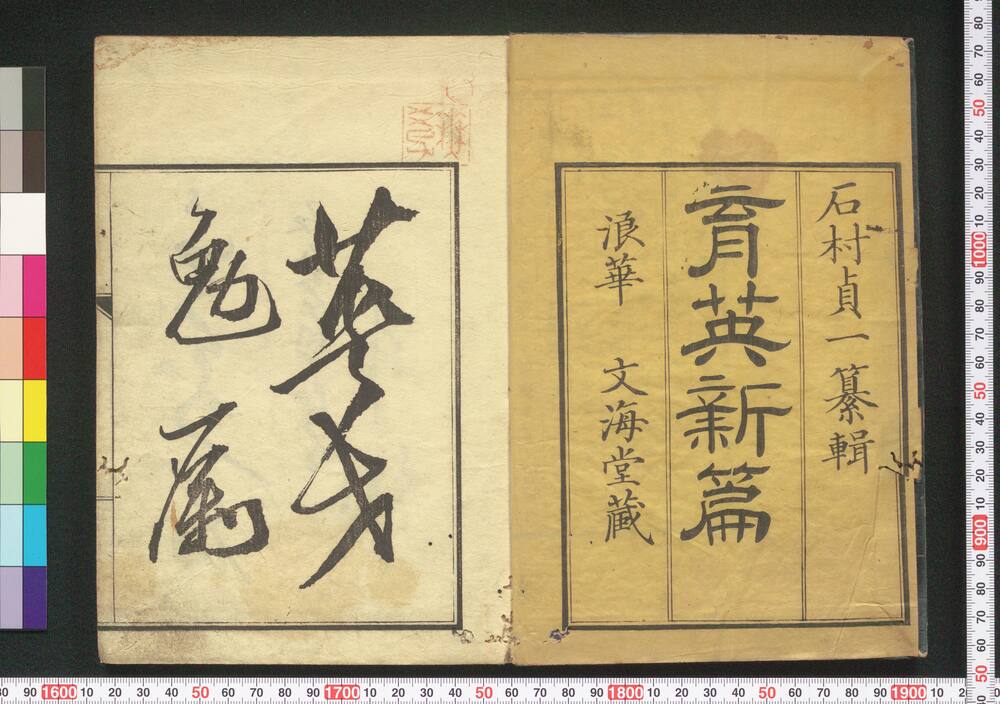 石村貞一纂輯
育英新篇
浪華 文海堂藏
英才
勉